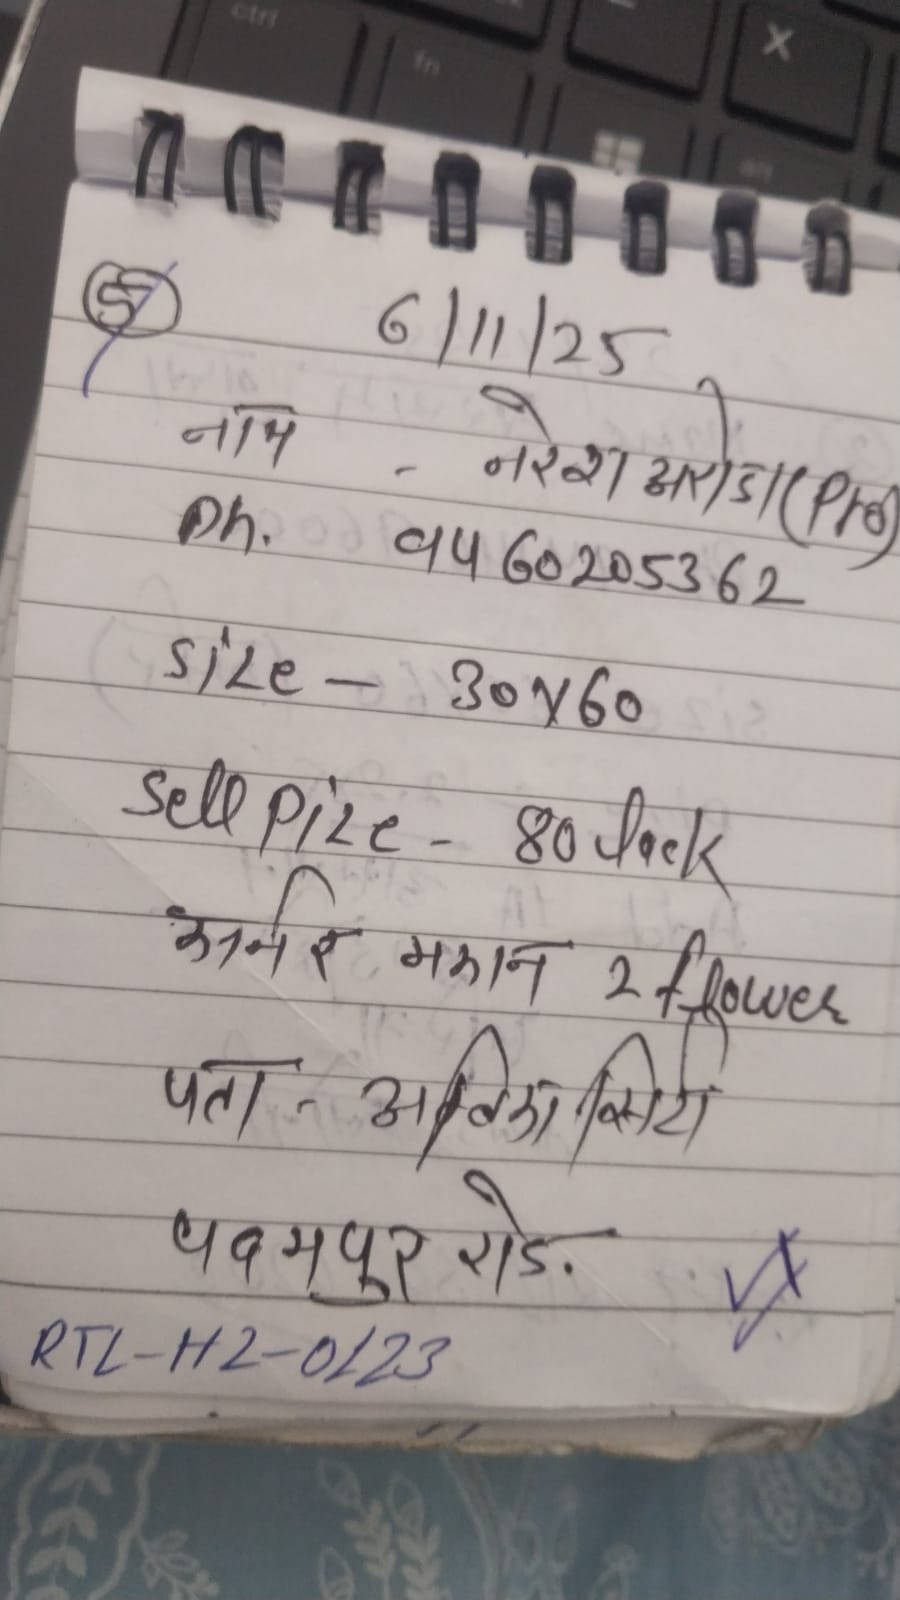 55
6/11/25
नाम - नरेश अरोडा (Pro)
Ph. 9460205362
Size - 30x60
Sell Pize - 80 lack
कार्नर मकान 2 flower
पता - अम्बिका सिटी
पदमपुर रोड.
RTL-H2-0123